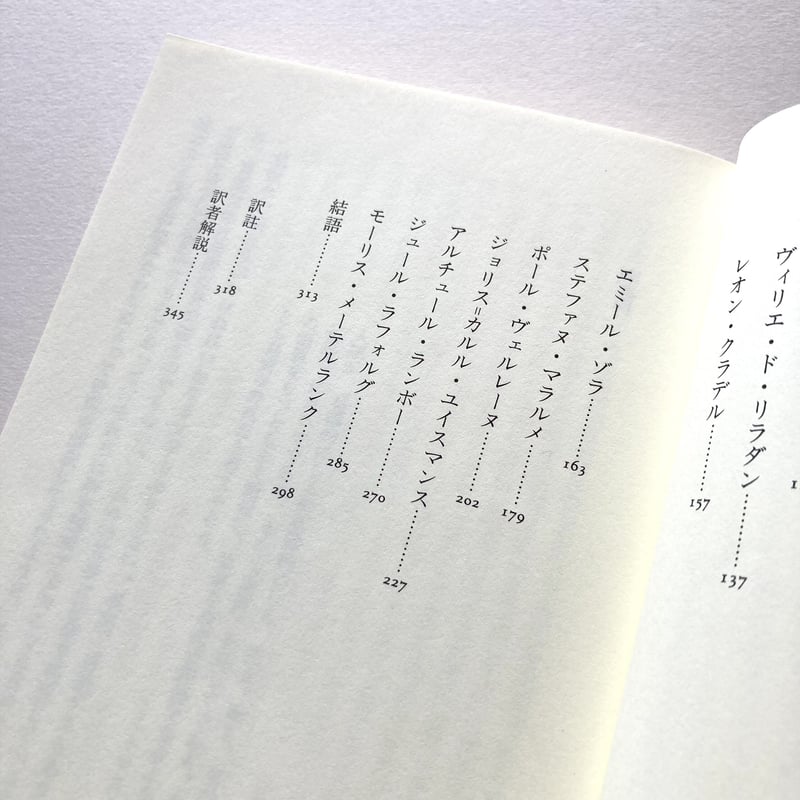 ヴィリエ・ド・リラダン……137
レオン・クラデル……157
エミール・ゾラ……163
ステファヌ・マラルメ……179
ポール・ヴェルレーヌ……202
ジョリス=カルル・ユイスマンス……227
アルチュール・ランボー……270
ジュール・ラフォルグ……285
モーリス・メーテルランク……298
結語……313
訳註……318
訳者解説……345